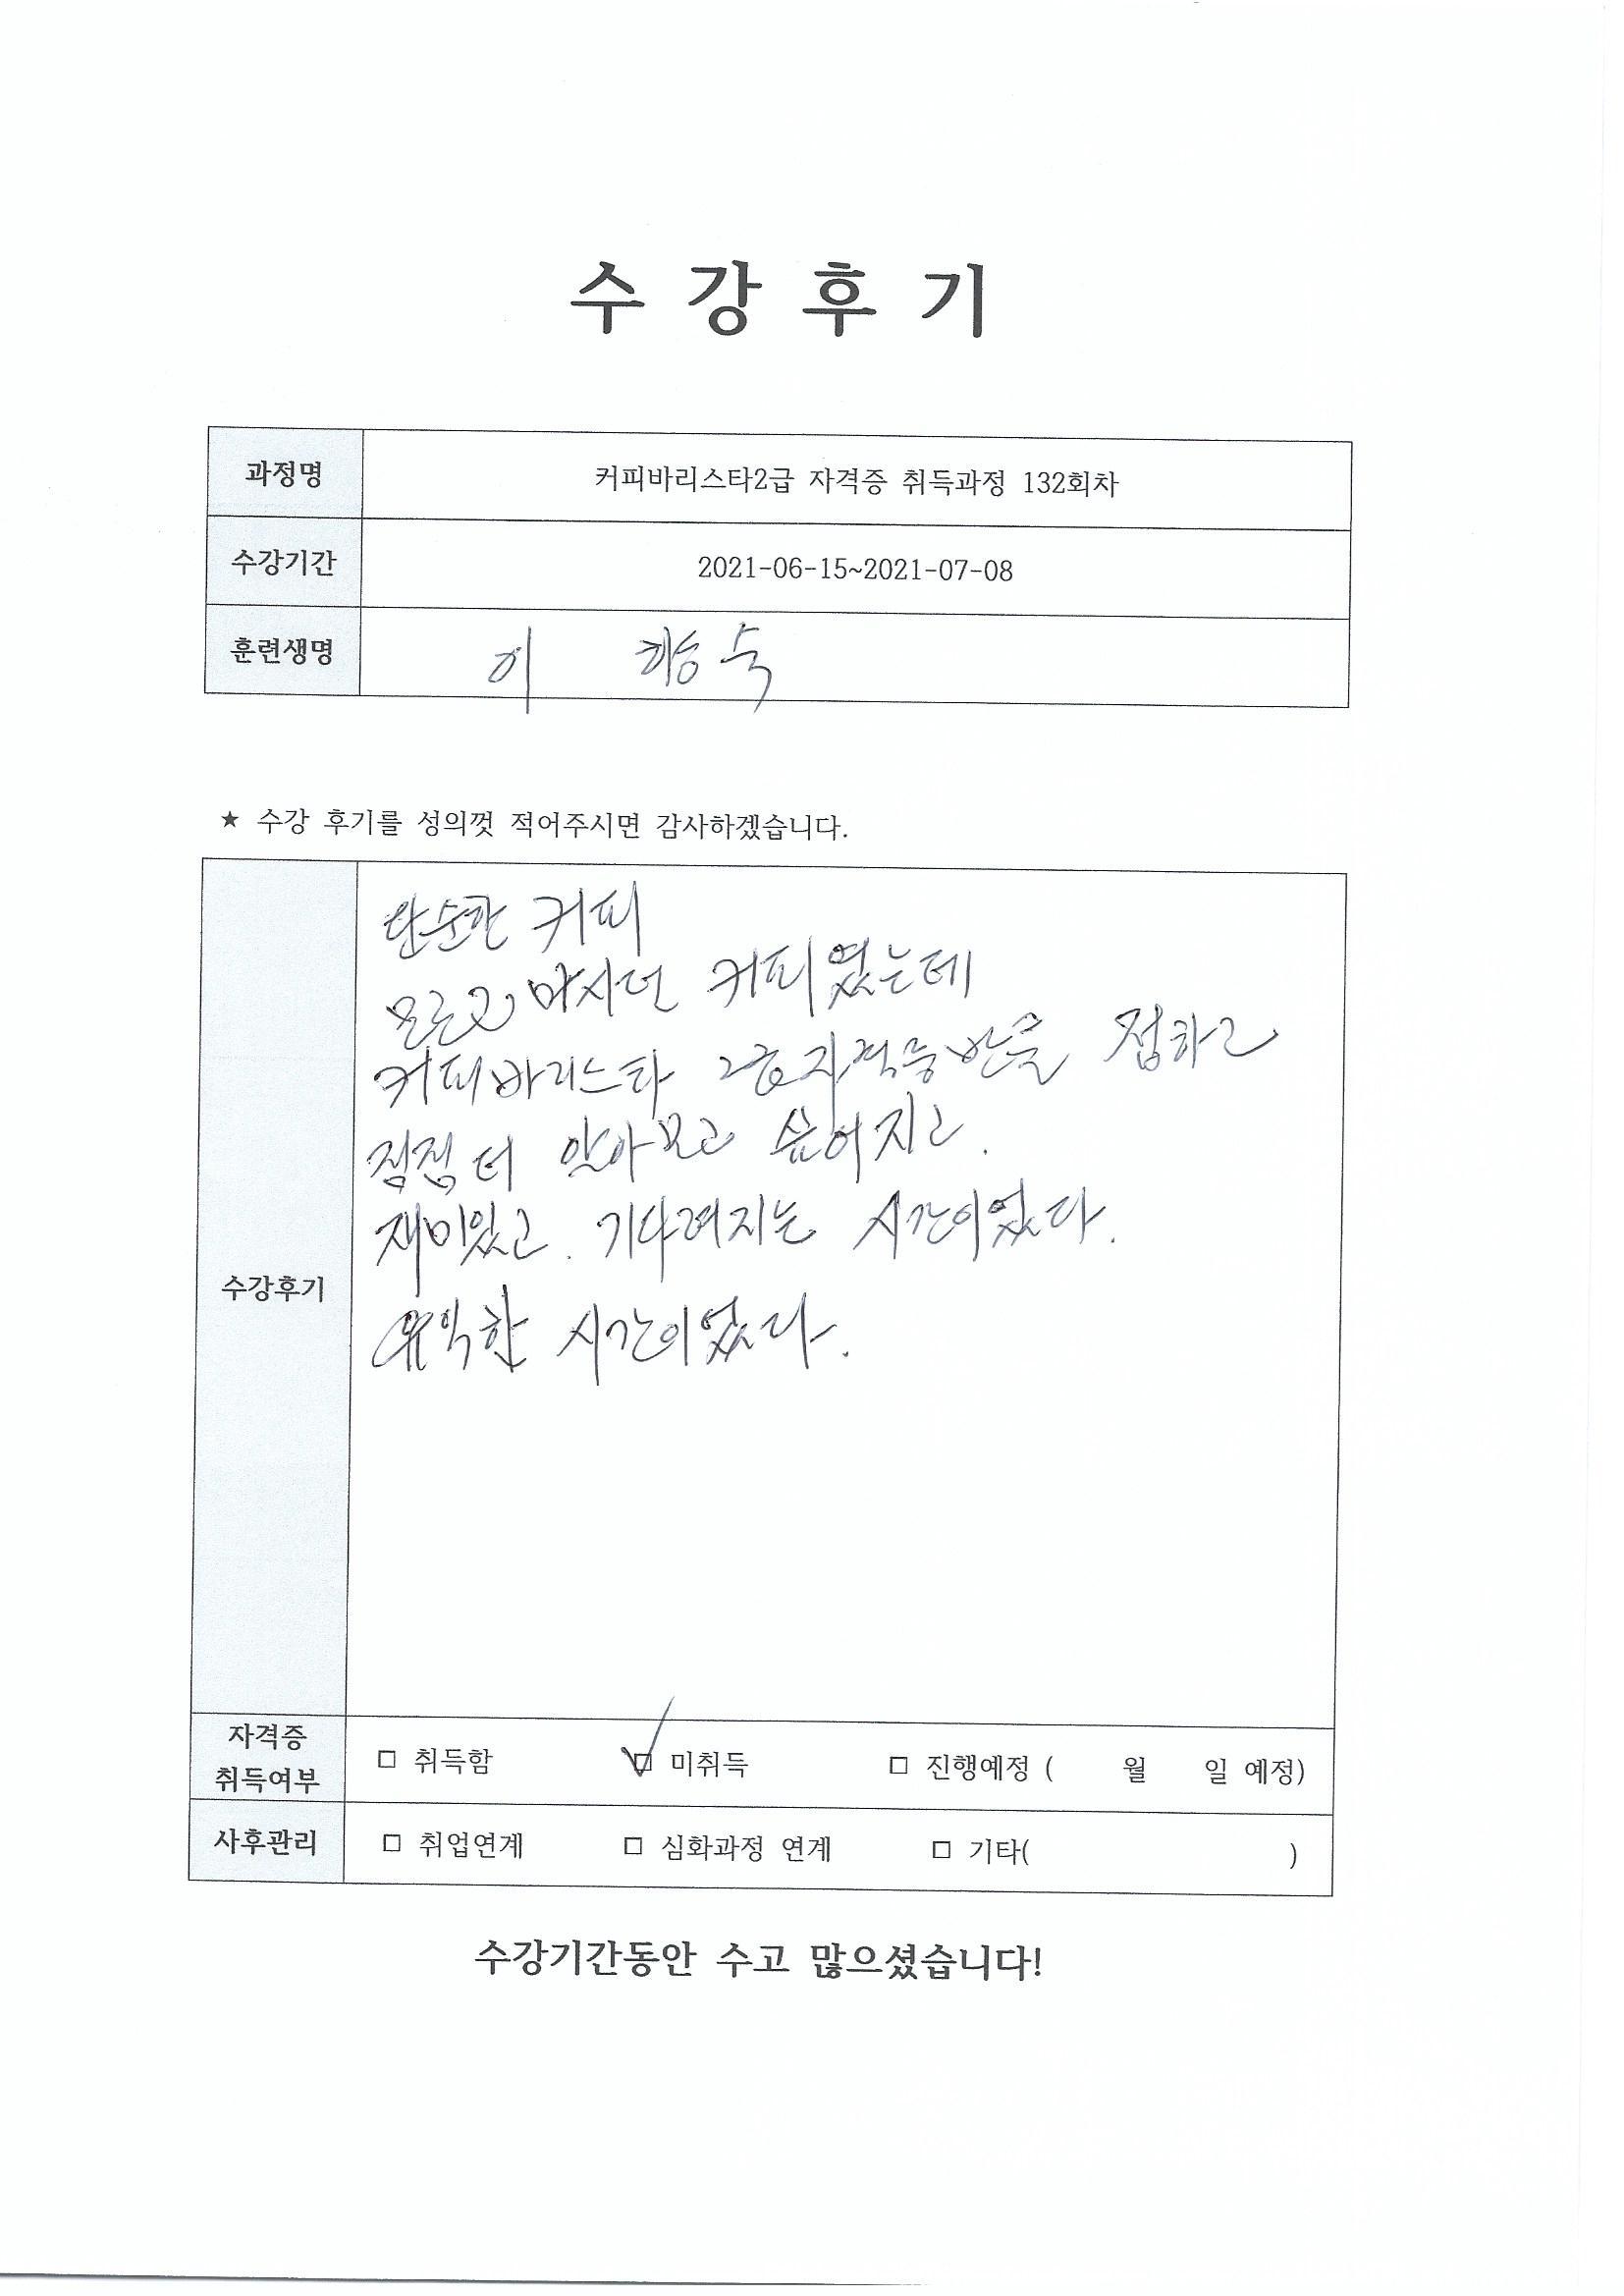 수 강 후 기
과정명 커피바리스타2급 자격증 취득과정 132회차
수강기간 2021-06-15~2021-07-08
훈련생명 이 숙
★ 수강 후기를 성의껏 적어주시면 감사하겠습니다.
단순한 커피
모르고 마시던 커피였는데
커피바리스타 2급자격증반을 접하고
점점 더 알아보고 싶어지고.
재미있고. 기다려지는 시간이었다.
수강후기
유익한 시간이었다.
자격증
취득여부
□ 취득함 ☑ 미취득 □ 진행예정 ( 월 일 예정)
사후관리 □ 취업연계 □ 심화과정 연계 □ 기타( )
수강기간동안 수고 많으셨습니다!